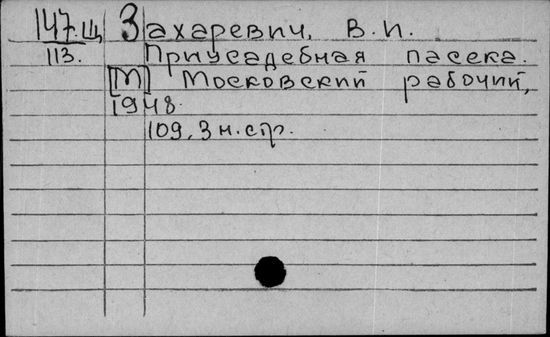 147.Щ Захаревич, В.И.
113. Приусадебная пасека.
[М] Московский рабочий,
1948.
109, 3 н.стр.